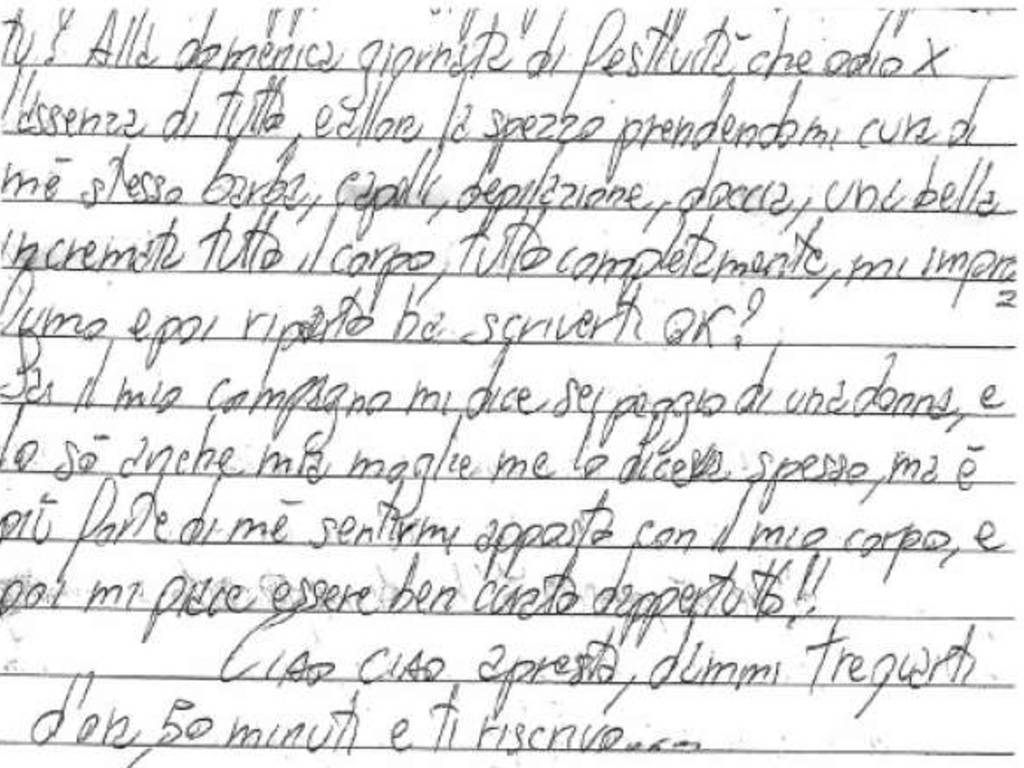 tu? Alla domenica giornata di festività che odio X
l'assenza di tutto, e allora la spezzo prendendomi cura di
mè stesso barba, capelli, depilazione, doccia, una bella
incremata tutto il corpo, tutto completamente, mi impro
fumo, e poi riparto ha scriverti OK?
Sai il mio compagno mi dice sei peggio di una donna, e
lo sò anche mia moglie me lo diceva spesso, ma è
più forte di mè sentirmi apposta con il mio corpo, e
poi mi piace essere ben curato dappertutto!!
Ciao ciao apresta, dammi tre quarti
d'ora, 50 minuti e ti riscrivo....